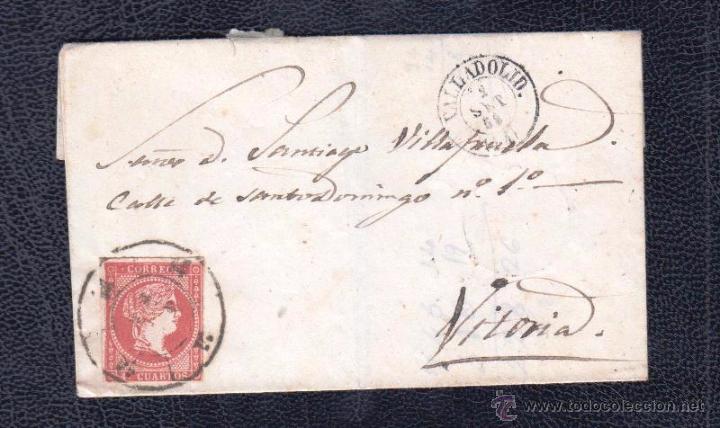 VALLADOLID.
2
SET
Señor D. Santiago Villafranela
Calle de Santo Domingo nº 1º
CORREOS
CUARTOS
Vitoria.
www.todocoleccion.net